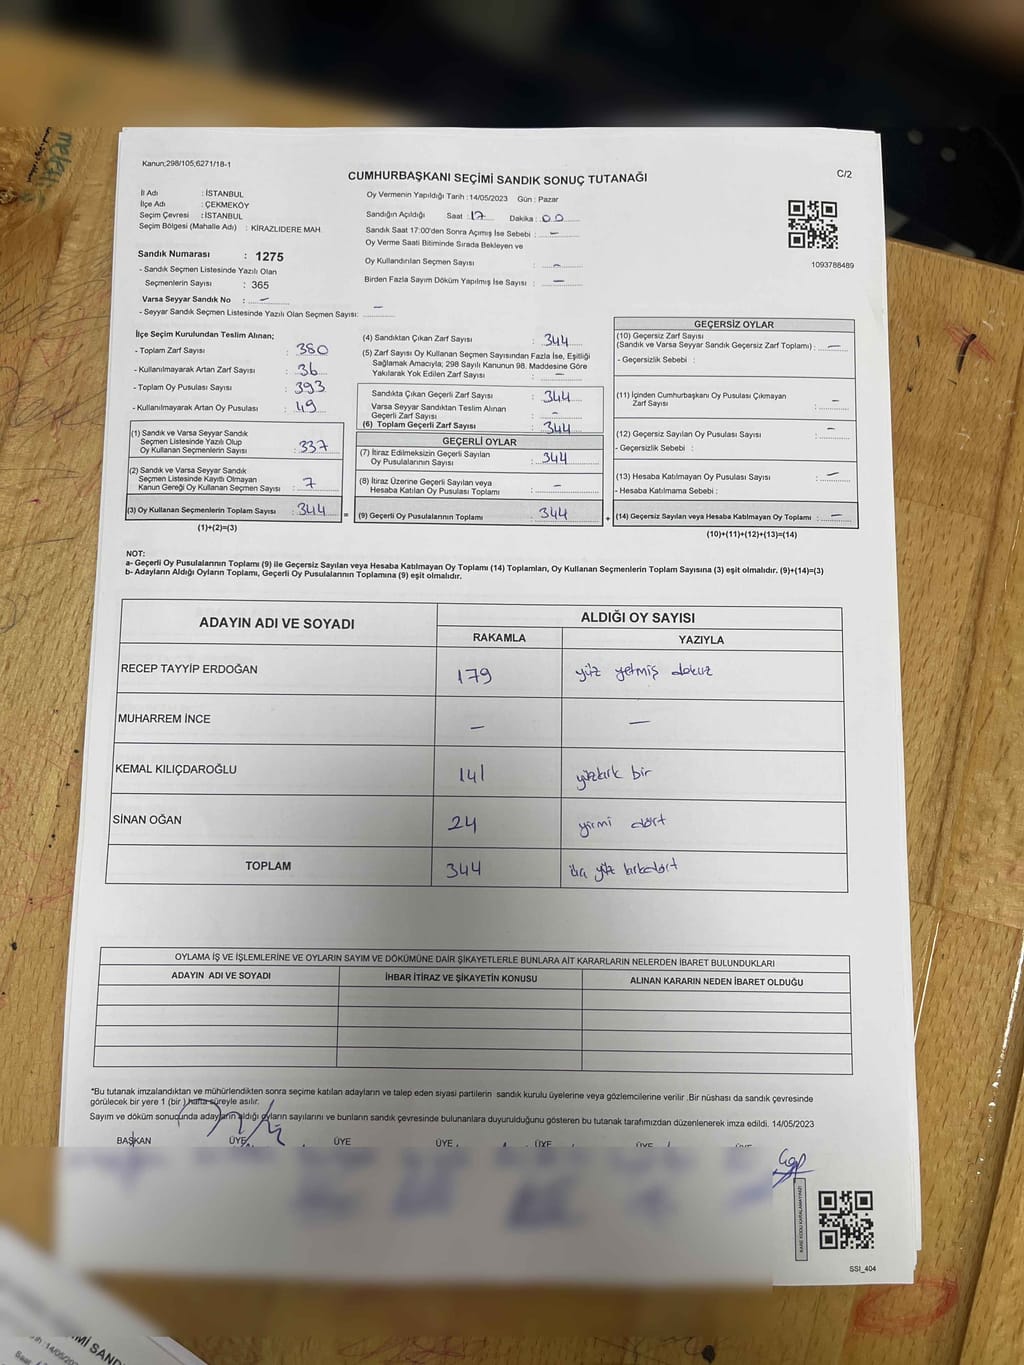 Kanun;298/105;6271/18-1
CUMHURBAŞKANI SEÇİMİ SANDIK SONUÇ TUTANAĞI
C/2
İl Adı : İSTANBUL
İlçe Adı : ÇEKMEKÖY
Seçim Çevresi : İSTANBUL
Seçim Bölgesi (Mahalle Adı) : KİRAZLIDERE MAH.
Sandık Numarası : 1275
- Sandık Seçmen Listesinde Yazılı Olan
Seçmenlerin Sayısı : 365
Varsa Seyyar Sandık No : –
- Seyyar Sandık Seçmen Listesinde Yazılı Olan Seçmen Sayısı: –
Oy Vermenin Yapıldığı Tarih : 14/05/2023 Gün : Pazar
Sandığın Açıldığı Saat : 17 Dakika : 00
Sandık Saat 17:00'den Sonra Açımış İse Sebebi : –
Oy Verme Saati Bitiminde Sırada Bekleyen ve
Oy Kullandırılan Seçmen Sayısı : –
Birden Fazla Sayım Döküm Yapılmış İse Sayısı : –
1093788489
İlçe Seçim Kurulundan Teslim Alınan;
- Toplam Zarf Sayısı : 380
- Kullanılmayarak Artan Zarf Sayısı : 36
- Toplam Oy Pusulası Sayısı : 393
- Kullanılmayarak Artan Oy Pusulası : 49
(1) Sandık ve Varsa Seyyar Sandık
Seçmen Listesinde Yazılı Olup
Oy Kullanan Seçmenlerin Sayısı : 337
(2) Sandık ve Varsa Seyyar Sandık
Seçmen Listesinde Kayıtlı Olmayan
Kanun Gereği Oy Kullanan Seçmen Sayısı : 7
(3) Oy Kullanan Seçmenlerin Toplam Sayısı : 344
(1)+(2)=(3)
(4) Sandıktan Çıkan Zarf Sayısı : 344
(5) Zarf Sayısı Oy Kullanan Seçmen Sayısından Fazla İse, Eşitliği
Sağlamak Amacıyla; 298 Sayılı Kanunun 98. Maddesine Göre
Yakılarak Yok Edilen Zarf Sayısı : –
Sandıkta Çıkan Geçerli Zarf Sayısı : 344
Varsa Seyyar Sandıktan Teslim Alınan
Geçerli Zarf Sayısı : –
(6) Toplam Geçerli Zarf Sayısı : 344
GEÇERLİ OYLAR
(7) İtiraz Edilmeksizin Geçerli Sayılan
Oy Pusulalarının Sayısı : 344
(8) İtiraz Üzerine Geçerli Sayılan veya
Hesaba Katılan Oy Pusulası Toplamı : –
= (9) Geçerli Oy Pusulalarının Toplamı : 344
GEÇERSİZ OYLAR
(10) Geçersiz Zarf Sayısı
(Sandık ve Varsa Seyyar Sandık Geçersiz Zarf Toplamı) : –
- Geçersizlik Sebebi :
(11) İçinden Cumhurbaşkanı Oy Pusulası Çıkmayan
Zarf Sayısı : –
(12) Geçersiz Sayılan Oy Pusulası Sayısı : –
- Geçersizlik Sebebi :
(13) Hesaba Katılmayan Oy Pusulası Sayısı : –
- Hesaba Katılmama Sebebi :
+ (14) Geçersiz Sayılan veya Hesaba Katılmayan Oy Toplamı : –
(10)+(11)+(12)+(13)=(14)
NOT:
a- Geçerli Oy Pusulalarının Toplamı (9) ile Geçersiz Sayılan veya Hesaba Katılmayan Oy Toplamı (14) Toplamları, Oy Kullanan Seçmenlerin Toplam Sayısına (3) eşit olmalıdır. (9)+(14)=(3)
b- Adayların Aldığı Oyların Toplamı, Geçerli Oy Pusulalarının Toplamına (9) eşit olmalıdır.
ADAYIN ADI VE SOYADI
ALDIĞI OY SAYISI
RAKAMLA YAZIYLA
RECEP TAYYİP ERDOĞAN 179 yüz yetmiş dokuz
MUHARREM İNCE – –
KEMAL KILIÇDAROĞLU 141 yüzkırk bir
SİNAN OĞAN 24 yirmi dört
TOPLAM 344 üç yüz kırkdört
OYLAMA İŞ VE İŞLEMLERİNE VE OYLARIN SAYIM VE DÖKÜMÜNE DAİR ŞİKAYETLERLE BUNLARA AİT KARARLARIN NELERDEN İBARET BULUNDUKLARI
ADAYIN ADI VE SOYADI İHBAR İTİRAZ VE ŞİKAYETİN KONUSU ALINAN KARARIN NEDEN İBARET OLDUĞU
*Bu tutanak imzalandıktan ve mühürlendikten sonra seçime katılan adayların ve talep eden siyasi partilerin sandık kurulu üyelerine veya gözlemcilerine verilir .Bir nüshası da sandık çevresinde
görülecek bir yere 1 (bir ) hafta süreyle asılır.
Sayım ve döküm sonucunda adayların aldığı oyların sayılarını ve bunların sandık çevresinde bulunanlara duyurulduğunu gösteren bu tutanak tarafımızdan düzenlenerek imza edildi. 14/05/2023
BAŞKAN ÜYE ÜYE ÜYE ÜYE ÜYE ÜYE
KARE KODU KARALAMAYINIZ!
SSI_404